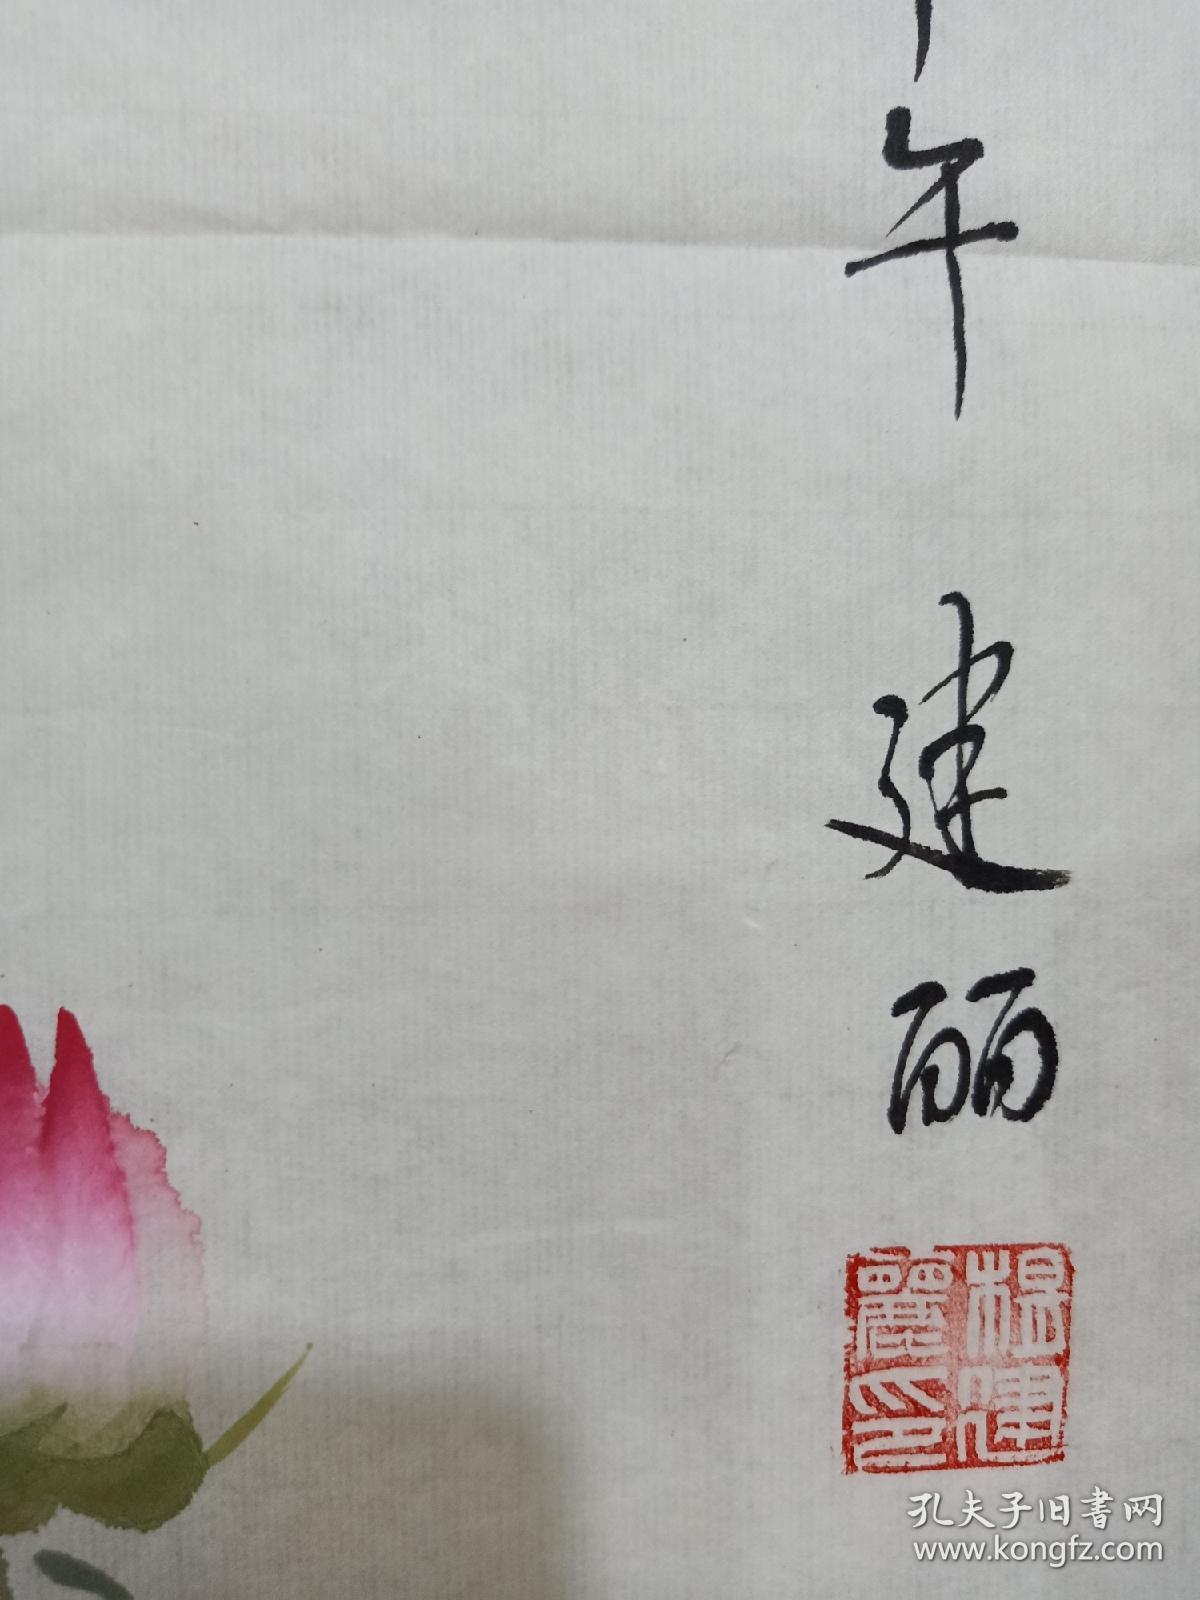 午 建丽
杨建
丽印
孔夫子旧书网
www.kongfz.com